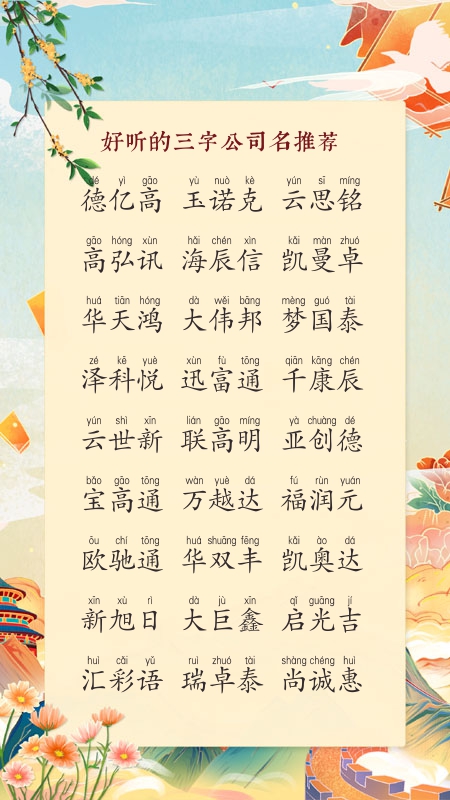 好听的三字公司名推荐
dé yì gāo yù nuò kè yún sī míng
德亿高 玉诺克 云思铭
gāo hóng xùn hǎi chén xìn kǎi màn zhuó
高弘讯 海辰信 凯曼卓
huá tiān hóng dà wěi bāng mèng guó tài
华天鸿 大伟邦 梦国泰
zé kē yuè xùn fù tōng qiān kāng chén
泽科悦 迅富通 千康辰
yún shì xīn lián gāo míng yà chuàng dé
云世新 联高明 亚创德
bǎo gāo tōng wàn yuè dá fú rùn yuán
宝高通 万越达 福润元
ōu chí tōng huá shuāng fēng kǎi ào dá
欧驰通 华双丰 凯奥达
xīn xù rì dà jù xīn qǐ guāng jí
新旭日 大巨鑫 启光吉
huì cǎi yǔ ruì zhuó tài shàng chéng huì
汇彩语 瑞卓泰 尚诚惠